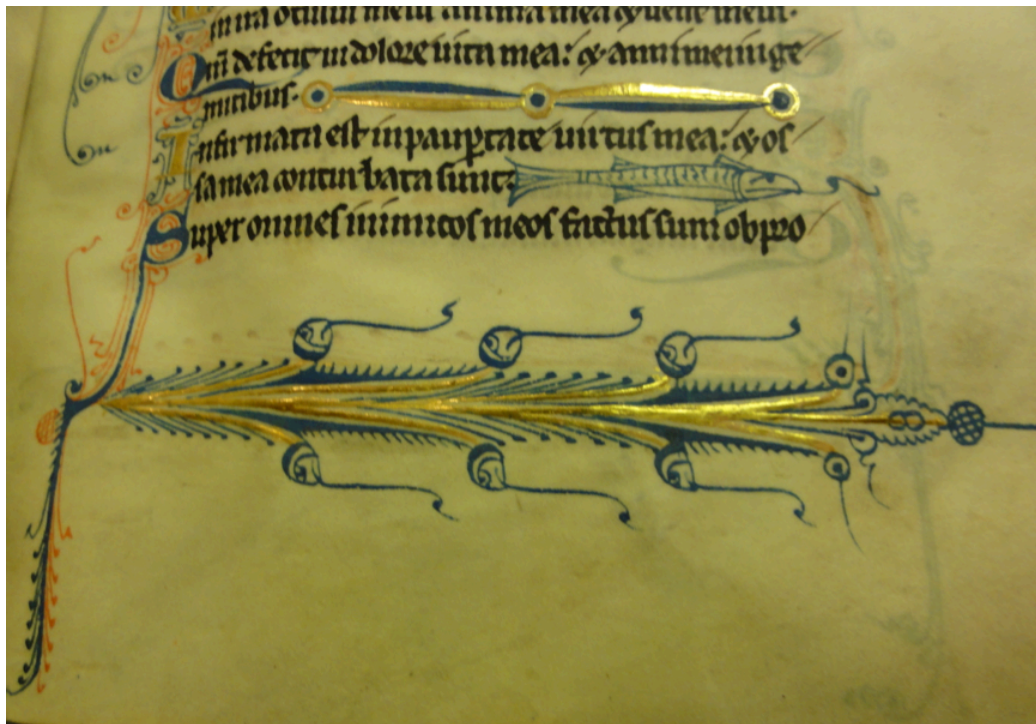 in ira oculus meus anima mea & uenter meus.
Qm̄ defecit in dolore uita mea: & anni mei in ge
mitibus.
Infirmata est in paup̱tate uirtus mea: & os
sa mea conturbata sunt:
Super omnes inimicos meos factus sum obpro